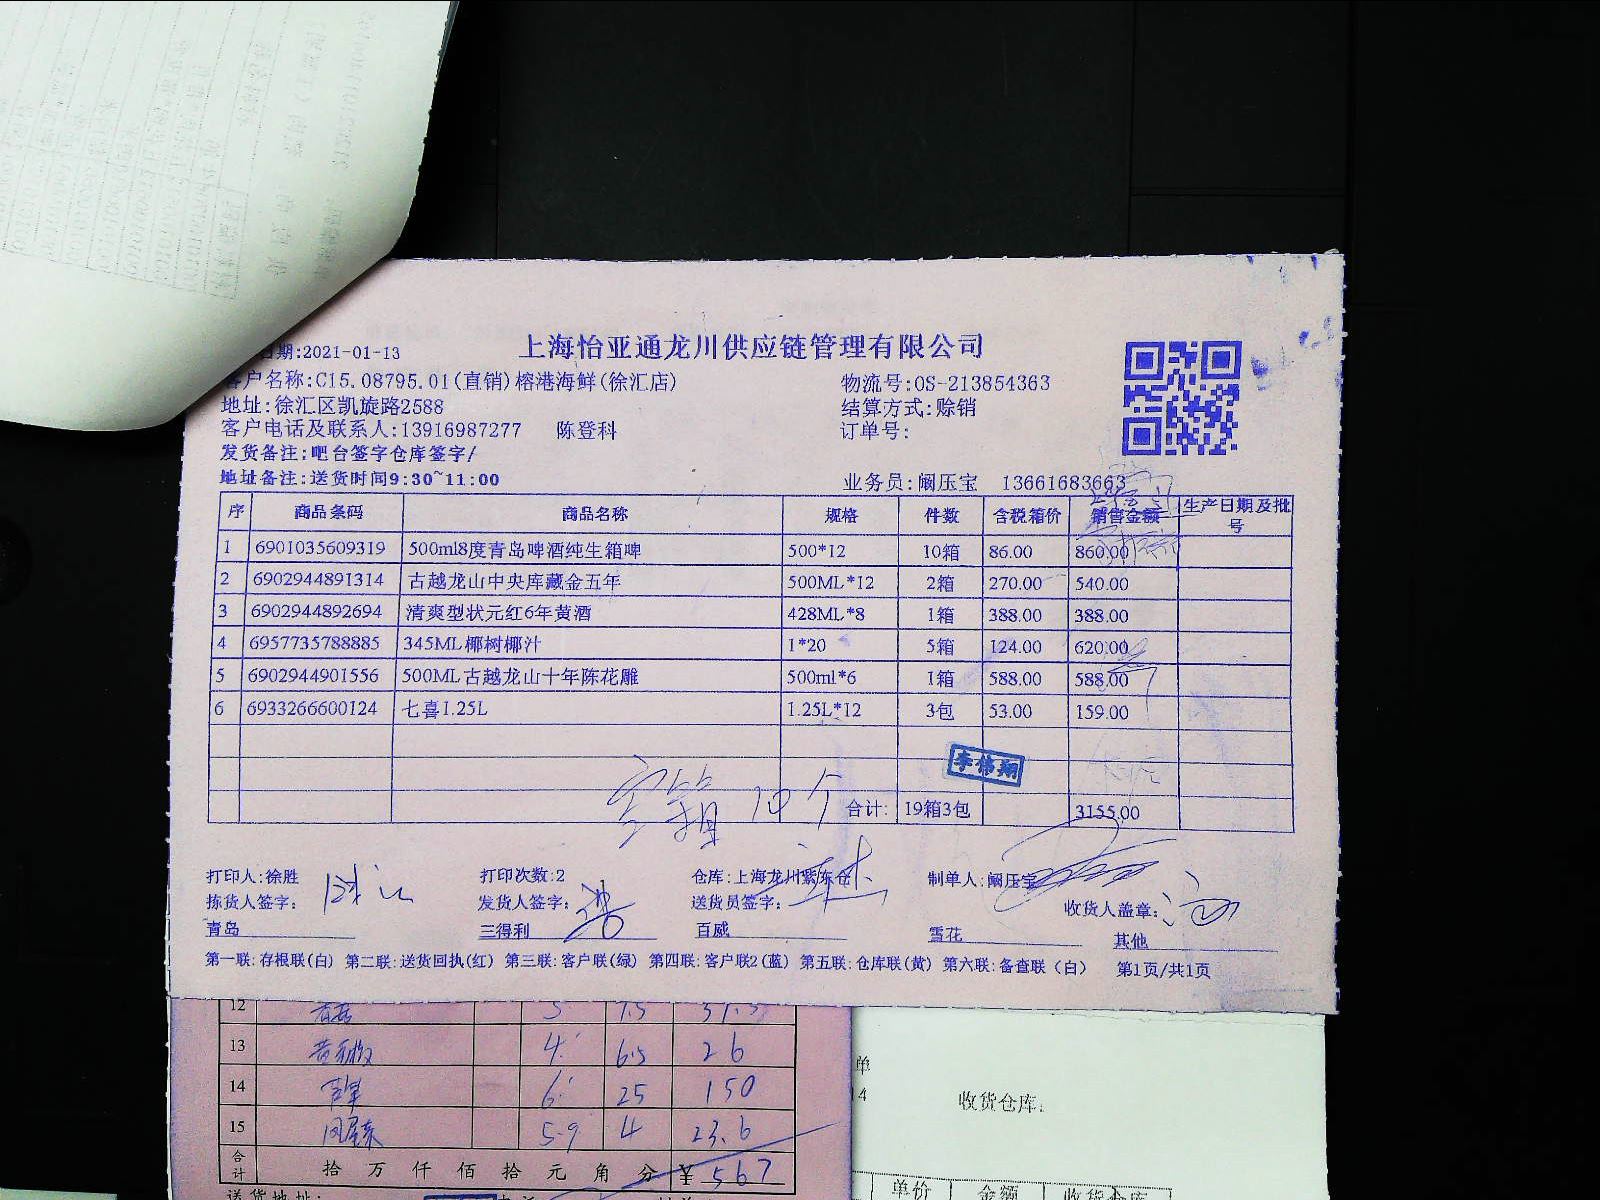 日期:2021-01-13
上海怡亚通龙川供应链管理有限公司
客户名称:C15.08795.01(直销)榕港海鲜(徐汇店)
物流号:OS-213854363
地址:徐汇区凯旋路2588
结算方式:赊销
客户电话及联系人:13916987277 陈登科
订单号:
发货备注:吧台签字仓库签字/
地址备注:送货时间9:30~11:00
业务员:阚压宝 13661683663
序 商品条码 商品名称 规格 件数 含税箱价 销售金额 生产日期及批号
1 6901035609319 500ml8度青岛啤酒纯生箱啤 500*12 10箱 86.00 860.00
2 6902944891314 古越龙山中央库藏金五年 500ML*12 2箱 270.00 540.00
3 6902944892694 清爽型状元红6年黄酒 428ML*8 1箱 388.00 388.00
4 6957735788885 345ML椰树椰汁 1*20 5箱 124.00 620.00
5 6902944901556 500ML古越龙山十年陈花雕 500ml*6 1箱 588.00 588.00
6 6933266600124 七喜1.25L 1.25L*12 3包 53.00 159.00
李伟翔
10个
合计: 19箱3包 3155.00
打印人:徐胜 打印次数:2 仓库:上海龙川紫东仓 制单人:阚压宝
拣货人签字: 发货人签字: 送货员签字: 收货人盖章:
青岛 三得利 百威 雪花 其他
第一联:存根联(白) 第二联:送货回执(红) 第三联:客户联(绿) 第四联:客户联2(蓝) 第五联:仓库联(黄) 第六联:备查联(白) 第1页/共1页
12 5 7.5 37.5
13 4 6.5 26
14 6 25 150
15 5.9 4 23.6
合计 拾万仟佰拾元角分 ¥567
送货地址:
单
4
收货仓库:
单价 金额 收货仓库